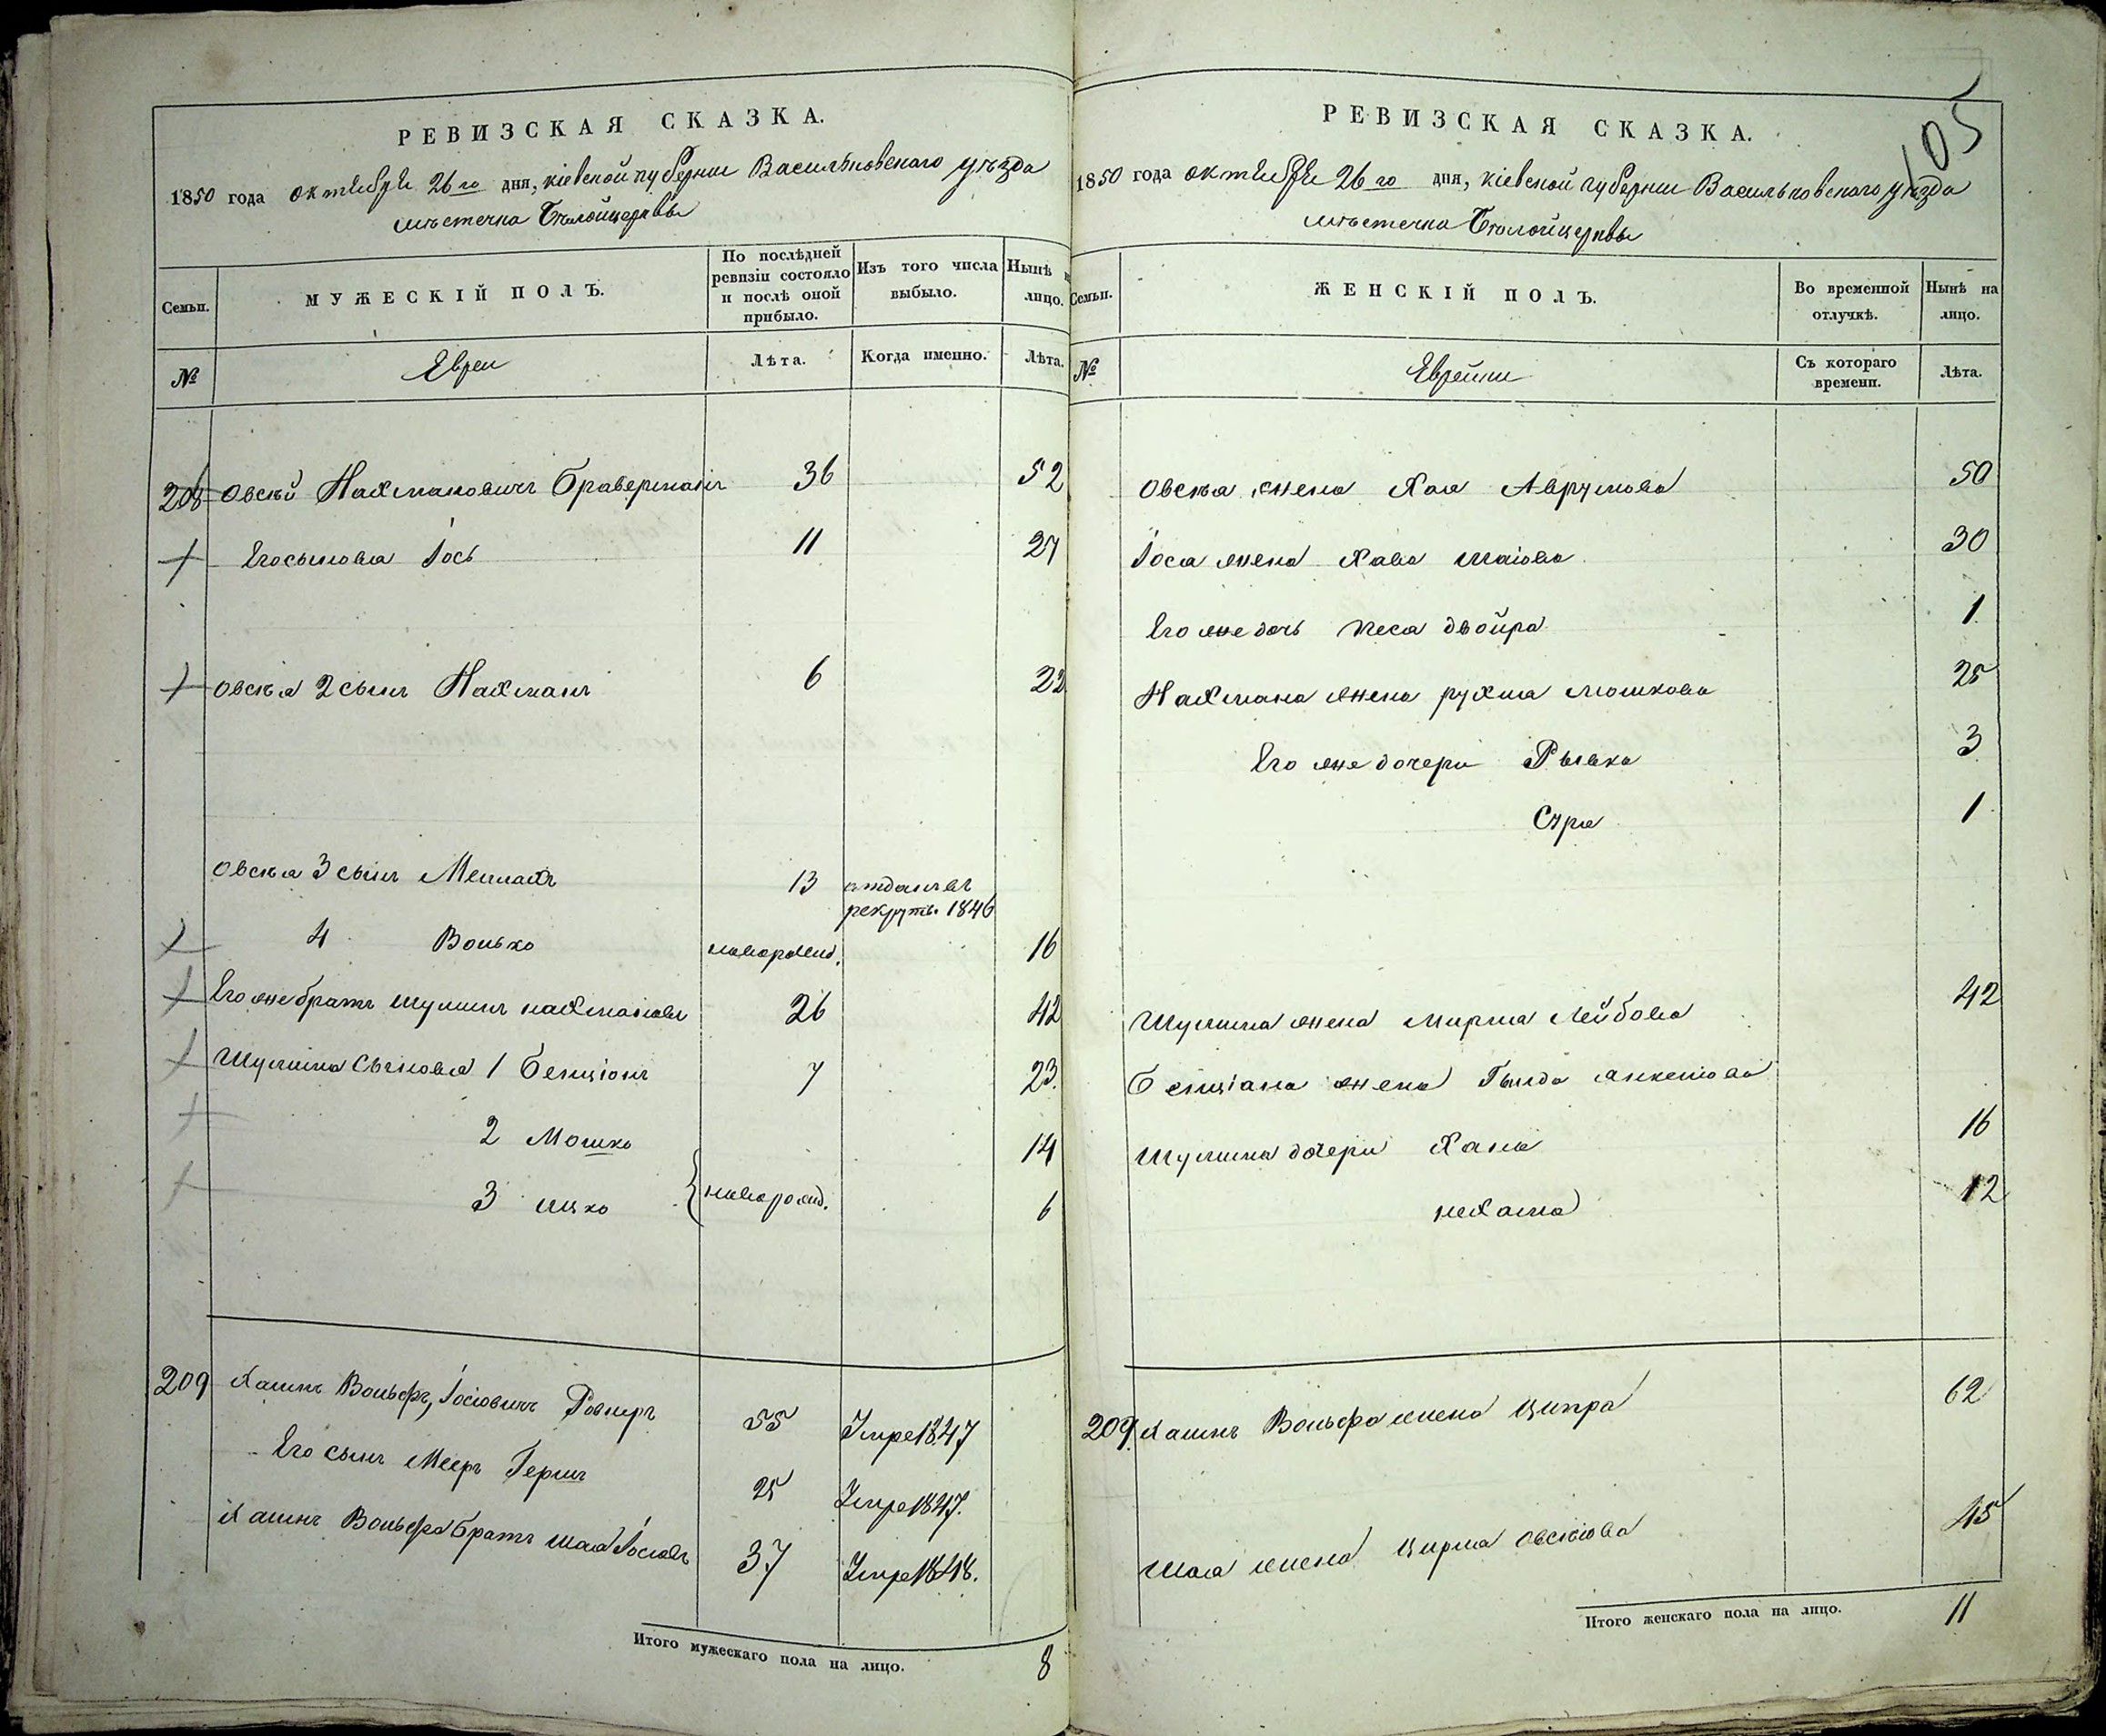 РЕВИЗСКАЯ СКАЗКА.
1850 года октября 26го дня, кіевской губерніи Васильковскаго уѣзда
мѣстечка Бѣлойцеркви
Семьи.
МУЖЕСКІЙ ПОЛЪ.
По послѣдней ревизіи состояло и послѣ оной прибыло.
Изъ того числа выбыло.
Нынѣ на лицо.
№
Евреи
Лѣта.
Когда именно.
Лѣта.
208 Овсѣй Нахмановичъ Браверманъ 36 52
Егосыновья Іось 11 27
Овсѣя 2 сынъ Нахманъ 6 22
Овсѣя 3 сынъ 13 отданъ въ
рекруты. 1846
4 Волько новорожд. 16
Его же братъ Шулимъ Нахмановъ 26 42
Шулима Сыновья 1 Бенціонъ 7 23.
2 Мошко 14
3 ицко новорожд. 6
209 Хаимъ Вольфъ Іосіовичъ Ровнеръ 55 Умре 1847
Его сынъ Мееръ Гершъ 25 Умре 1847.
Хаимъ Вольфа братъ Шая Іосіовъ 37 Умре 1848.
Итого мужескаго пола на лицо. 8
105
РЕВИЗСКАЯ СКАЗКА.
1850 года октября 26го дня, кіевской губерніи Васильковскаго уѣзда
мѣстечка Бѣлойцеркви
Семьи.
ЖЕНСКІЙ ПОЛЪ.
Во временной отлучкѣ.
Нынѣ на лицо.
№
Еврейки
Съ котораго времени.
Лѣта.
Овсѣя жена Хая Аврумова 50
Іося жена Хава Шаіова 30
Его же дочь Песя двойра 1
Нахмана жена рухля мошкова 25
Его же дочери Рывка 3
Сура 1
Шулима жена Мирля Лейбова 42
Бенціана жена Гинда Янкелова
Шулима дочери Хана 16
нехама 12
209. Хаимъ Вольфа жена Ципра 62
Шая жена Цирля Овсѣіова 45
Итого женскаго пола на лицо. 11